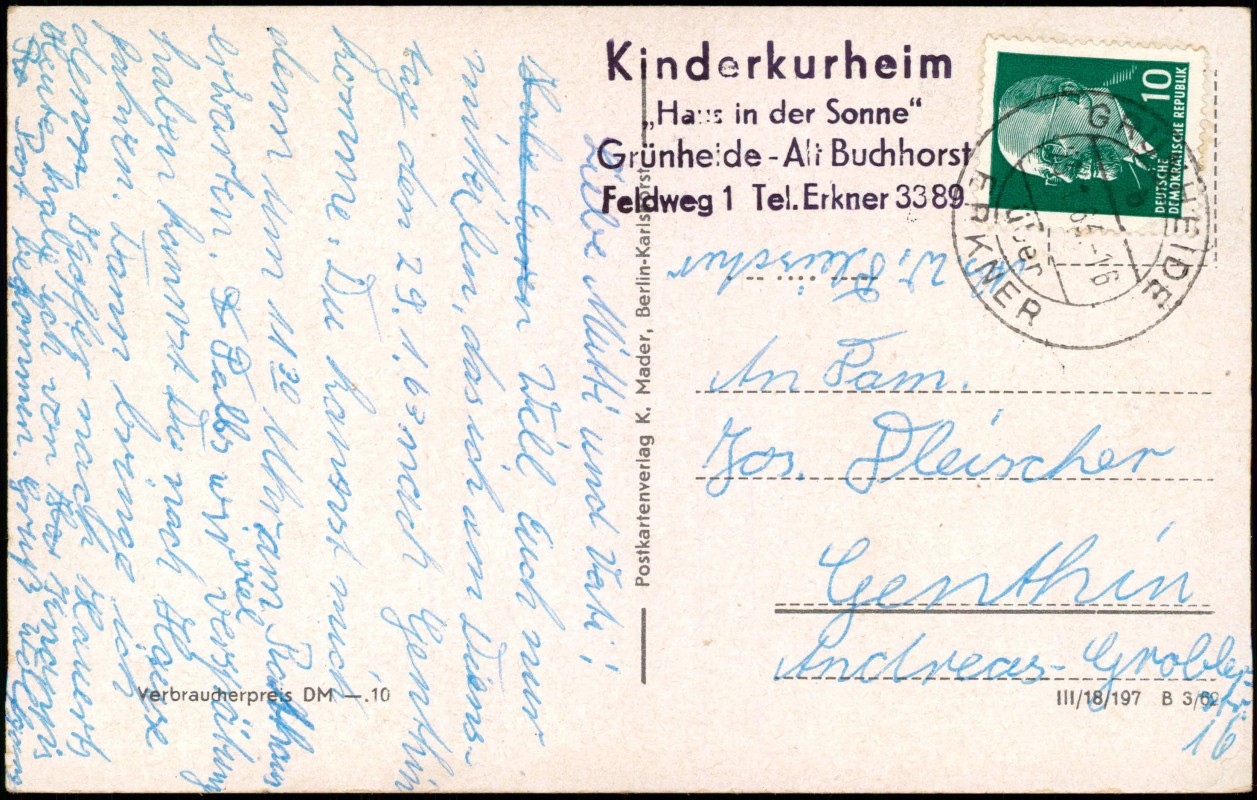 Kinderkurheim
„Haus in der Sonne“
Grünheide - Alt Buchhorst
Feldweg 1 Tel. Erkner 3389
10
DEUTSCHE
DEMOKRATISCHE REPUBLIK
GRÜNHEIDE
über
ERKNER
-16
W. Fleischer
An Fam.
Jos. Fleischer
Genthin
Andreas-Gröbler-
16
Postkartenverlag K. Mader, Berlin-Karlshorst
III/18/197 B 3/62
Verbraucherpreis DM —.10
Liebe Mutti und Vati!
Will Euch nur
mitteilen, das ich am Diens-
tag den 29.1.63 nach Genthin
komme. Du kannst mich
dann um 11 30 Uhr am Rathaus
erwarten. Falls wir viel Verspätung
haben kannst Du nach Hause
fahren. Dann bringe ich
den Koffer nach Hause
Heute habe ich von
die Post bekommen. Gruß